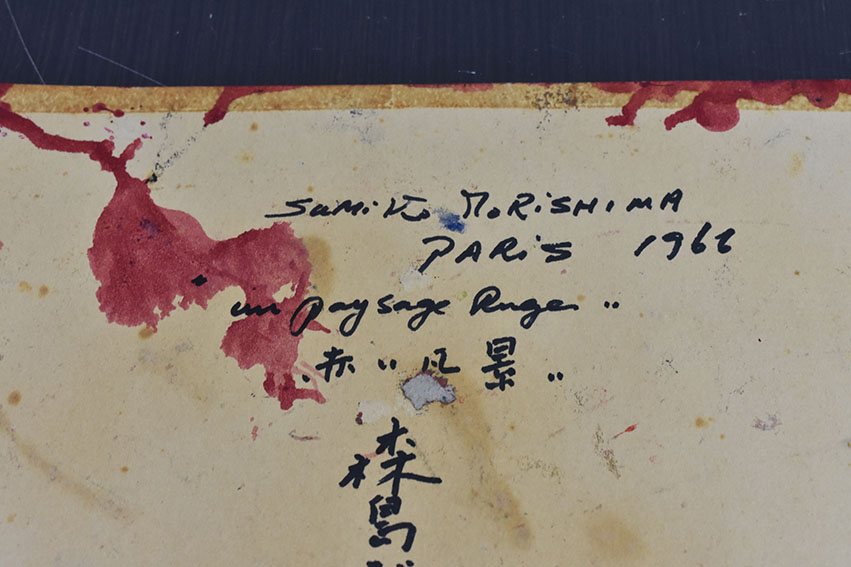 SUMIKO MORISHIMA
PARIS 1966
"un paysage Ruge"
"赤い风景"
森島